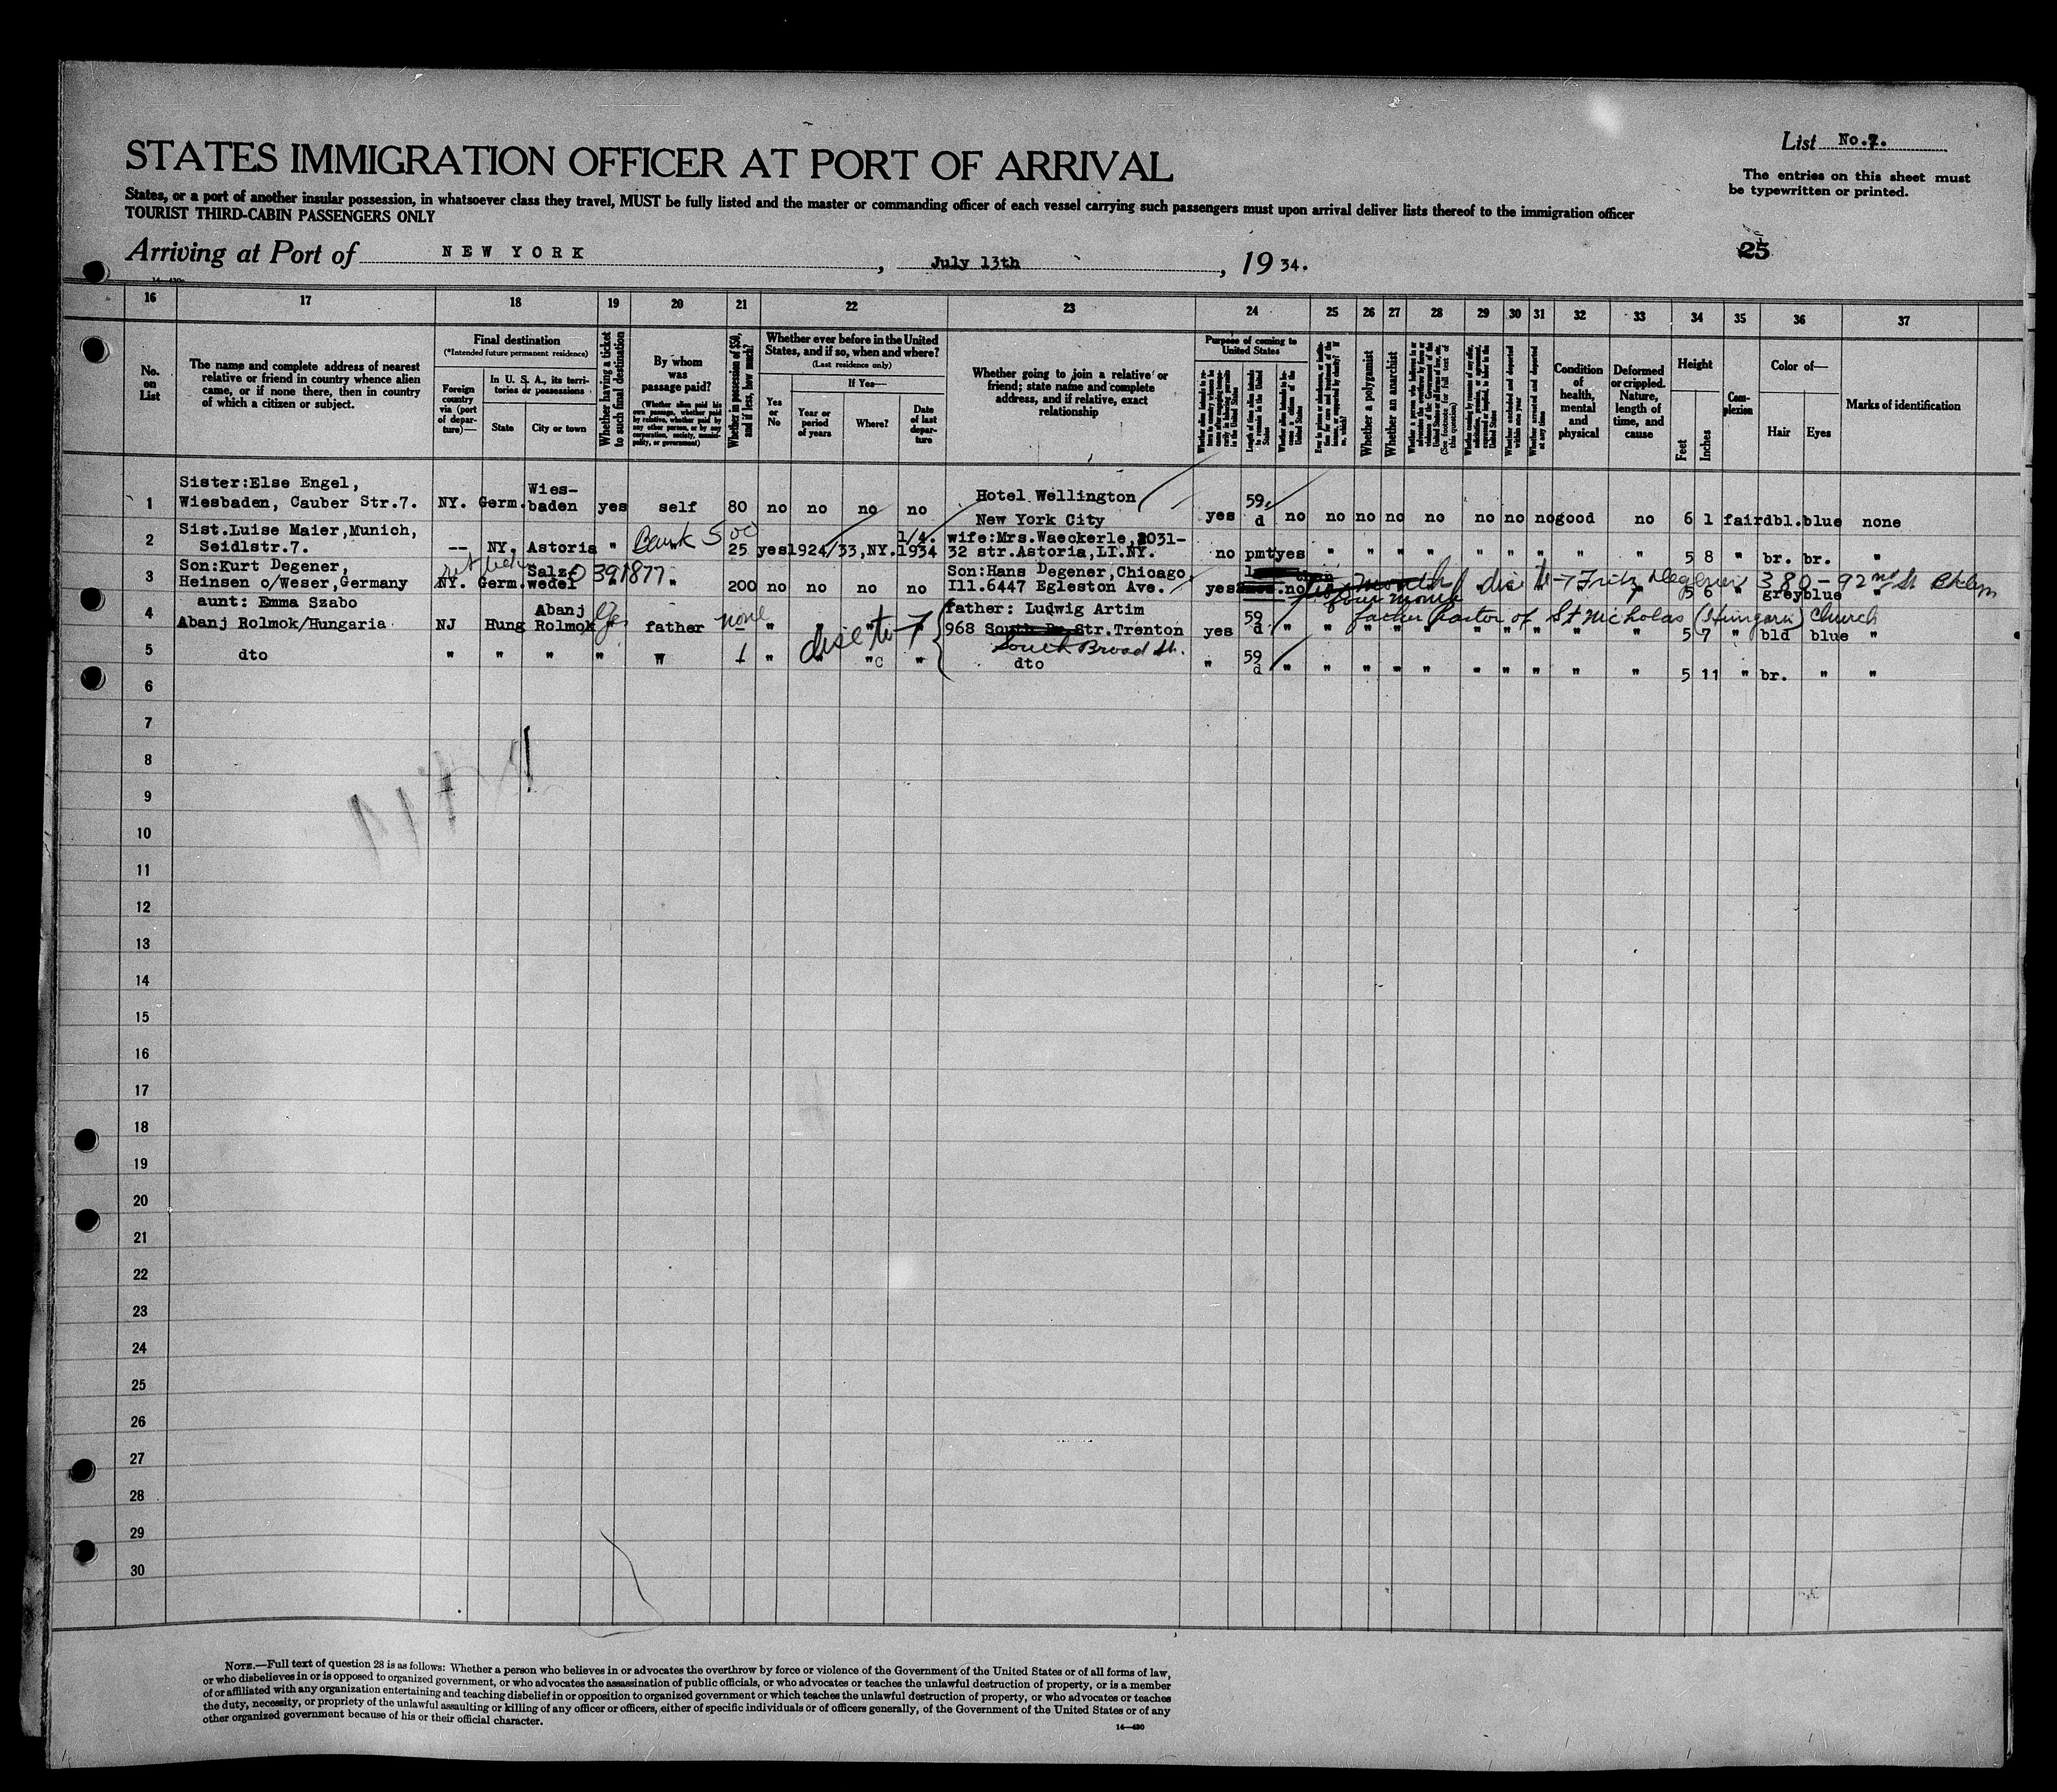 List No.7.
STATES IMMIGRATION OFFICER AT PORT OF ARRIVAL
The entries on this sheet must
be typewritten or printed.
States, or a port of another insular possession, in whatsoever class they travel, MUST be fully listed and the master or commanding officer of each vessel carrying such passengers must upon arrival deliver lists thereof to the immigration officer
TOURIST THIRD-CABIN PASSENGERS ONLY
Arriving at Port of NEW YORK, July 13th, 1934.
25
16 17 18 19 20 21 22 23 24 25 26 27 28 29 30 31 32 33 34 35 36 37
No. on List
The name and complete address of nearest
relative or friend in country whence alien
came, or if none there, then in country
of which a citizen or subject.
Final destination
(*Intended future permanent residence)
Foreign country via (port of departure)—
In U. S. A., its territories or possessions
State
City or town
Whether having a ticket to such final destination
By whom was passage paid?
(Whether alien paid his own passage, whether paid by relative, whether paid by any other person, or by any corporation, society, municipality, or government)
Whether in possession of $50, and if less, how much?
Whether ever before in the United
States, and if so, when and where?
(Last residence only)
Yes or No
If Yes—
Year or period of years
Where?
Date of last departure
Whether going to join a relative or
friend; state name and complete
address, and if relative, exact
relationship
Purpose of coming to United States
Whether a polygamist
Whether an anarchist
Condition of health, mental and physical
Deformed or crippled. Nature, length of time, and cause
Height
Feet
Inches
Complexion
Color of—
Hair
Eyes
Marks of identification
Sister:Else Engel,
1 Wiesbaden, Cauber Str.7. NY. Germ. Wies-baden yes self 80 no no no no Hotel Wellington New York City yes 59 d no no no no no no no no good no 6 1 fair dbl. blue none
2 Sist.Luise Maier,Munich,
Seidlstr.7. -- NY. Astoria " Bank 500 25 yes 1924/33,NY. 1/4. 1934 wife:Mrs.Waeckerle,2031-
32 str.Astoria,LI.NY. no pmt yes " " " " " " " " " 5 8 " br. br. "
3 Son:Kurt Degener,
Heinsen o/Weser,Germany NY. Germ. Salz-wedel 391877 " 200 no no no no Son:Hans Degener,Chicago,
Ill.6447 Egleston Ave. yes no four month disc to Fritz Degener 380-92nd St Bklyn 5 6 " grey blue "
4 aunt: Emma Szabo
Abanj Rolmok/Hungaria NJ Hung Abanj Rolmok yes father none " " " " father: Ludwig Artim
968 Str.Trenton
South Broad St. yes 59 d " father Pastor of St Nicholas (Hungari) Church 5 7 " bld blue "
disc to
5 dto " " " " " 1 " " " " dto " 59 d " " " " " " " " " " 5 11 " br. " "
6
7
8
9
10
11
12
13
14
15
16
17
18
19
20
21
22
23
24
25
26
27
28
29
30
NOTE.—Full text of question 28 is as follows: Whether a person who believes in or advocates the overthrow by force or violence of the Government of the United States or of all forms of law,
or who disbelieves in or is opposed to organized government, or who advocates the assassination of public officials, or who advocates or teaches the unlawful destruction of property, or is a member
of or affiliated with any organization entertaining and teaching disbelief in or opposition to organized government or which teaches the unlawful destruction of property, or who advocates or teaches
the duty, necessity, or propriety of the unlawful assaulting or killing of any officer or officers, either of specific individuals or of officers generally, of the Government of the United States or of any
other organized government because of his or their official character.
14—430